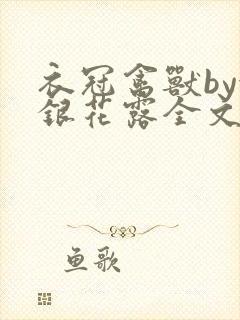 衣冠禽獸by
銀花露全文
鱼歌